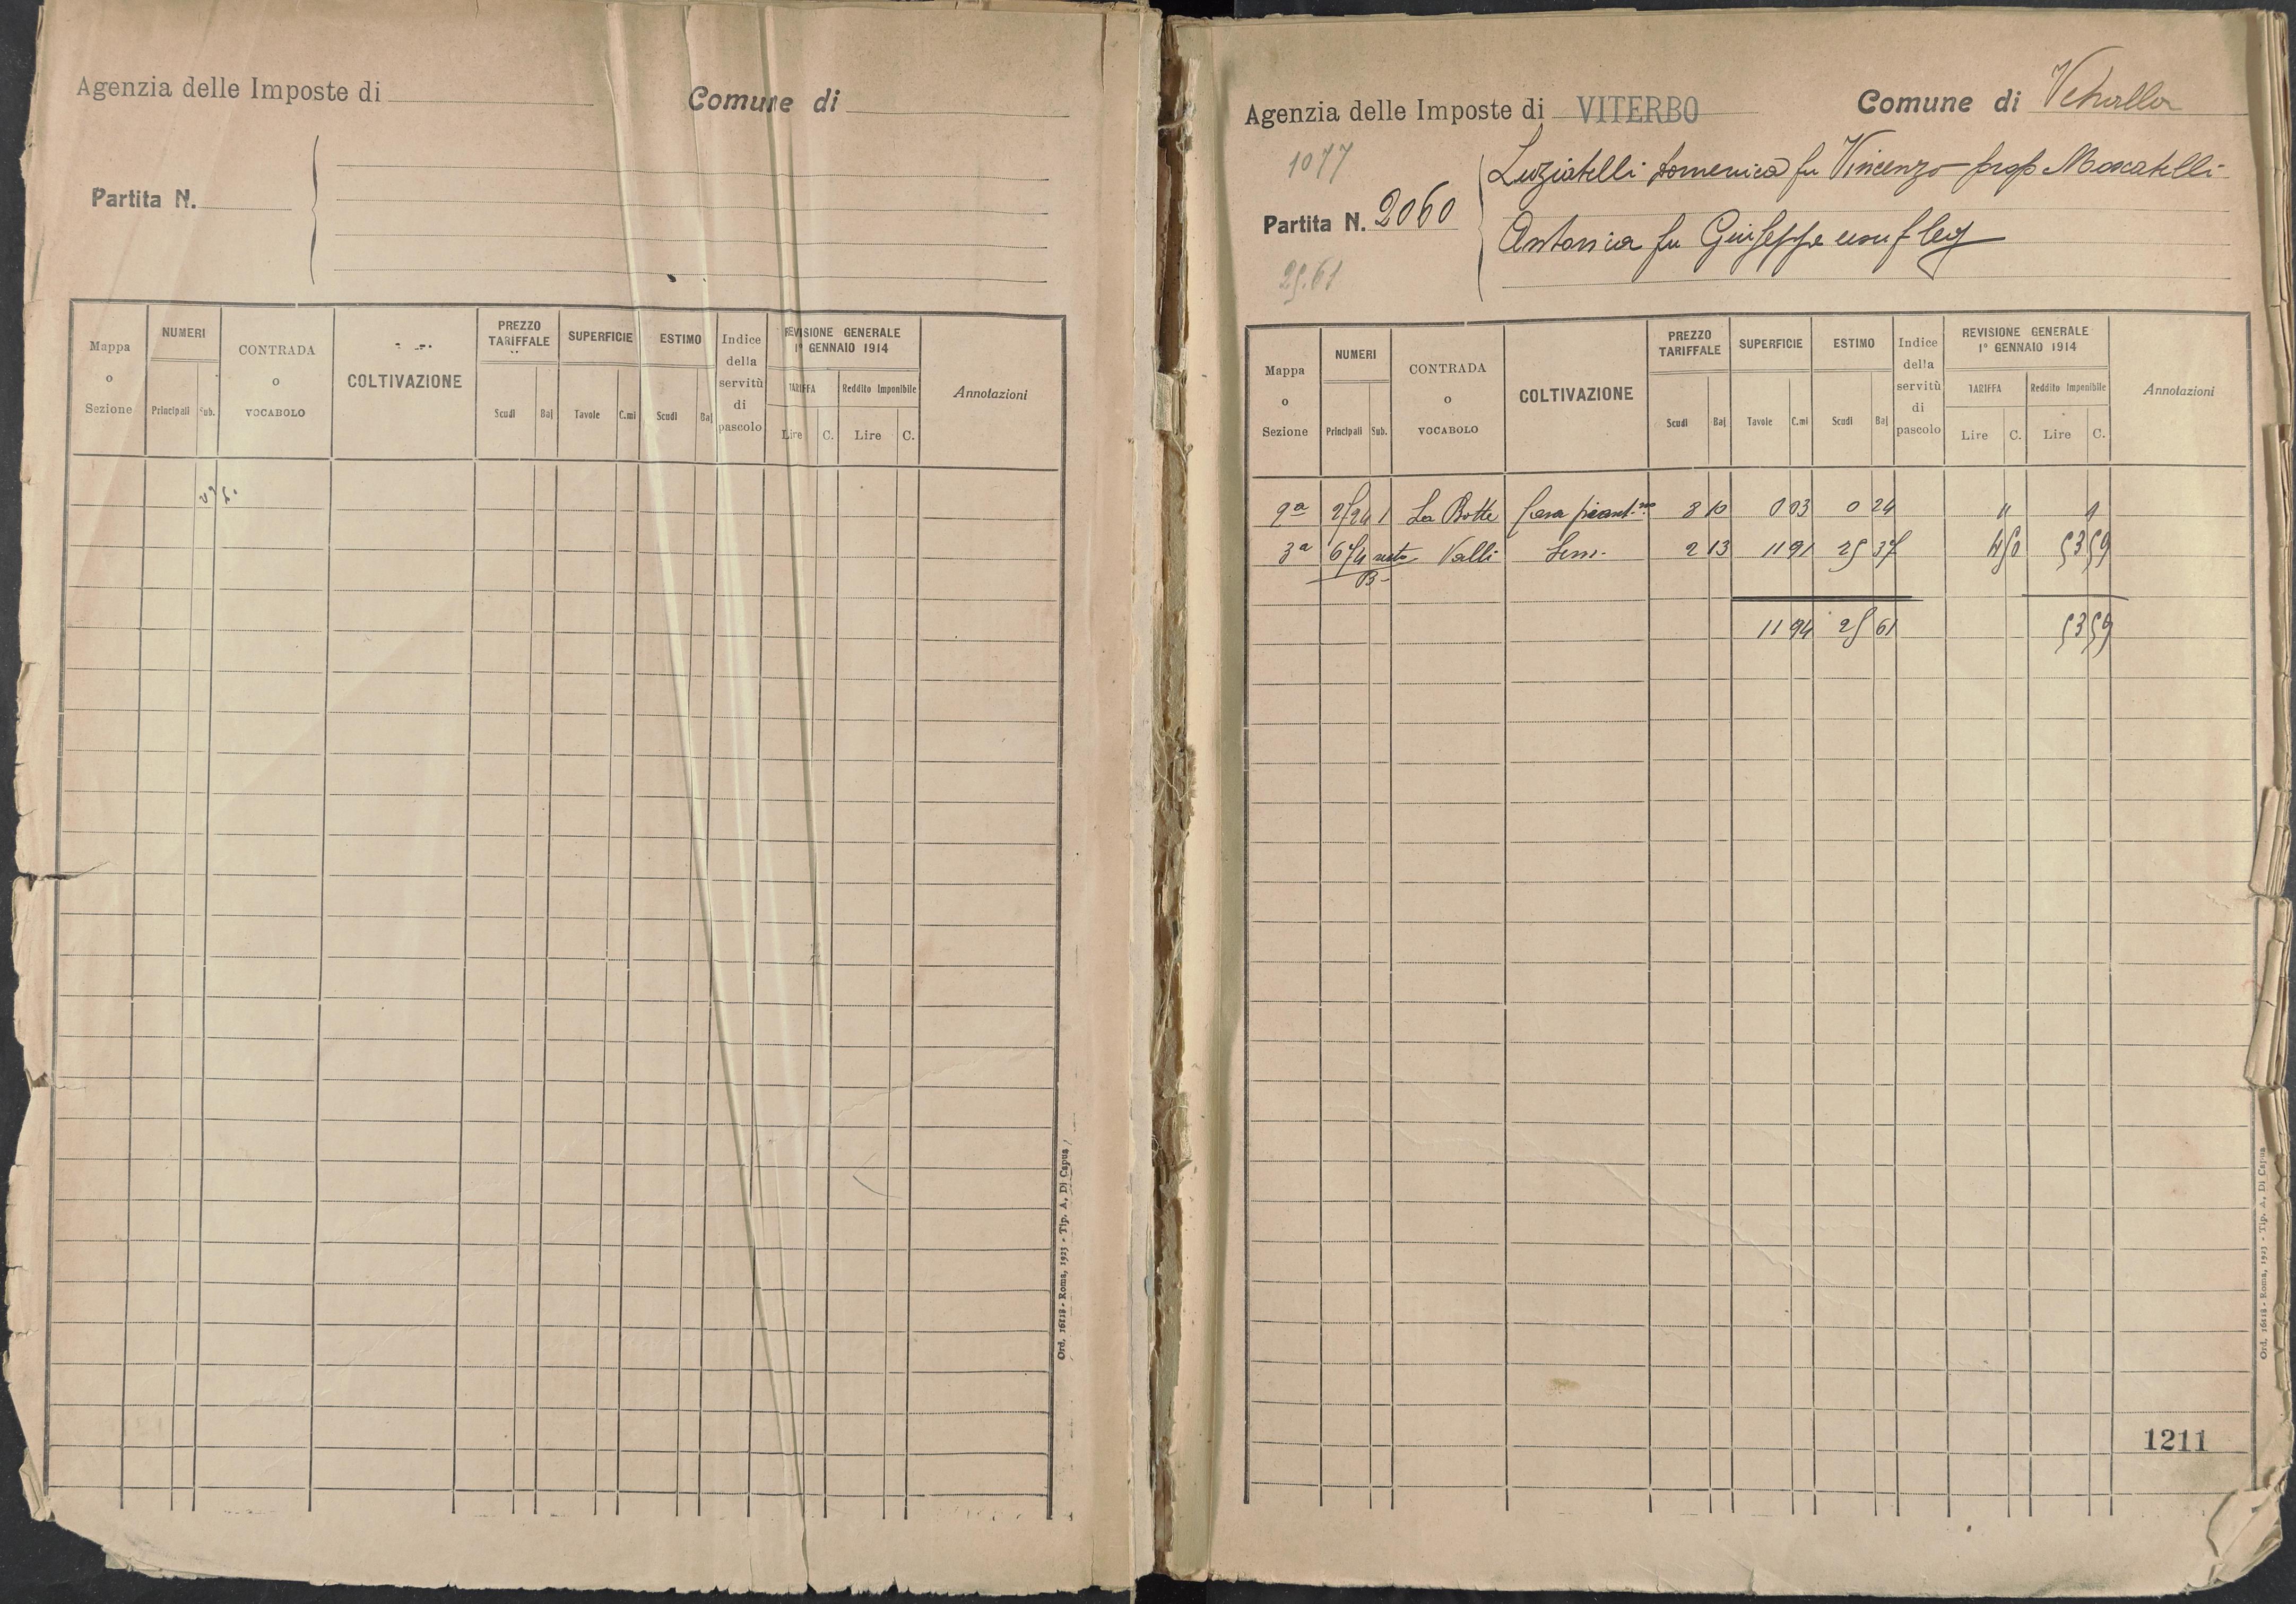 Agenzia delle Imposte di
Comune di
Partita N.
Mappa o Sezione
NUMERI
Principali
Sub.
CONTRADA o VOCABOLO
COLTIVAZIONE
PREZZO TARIFFALE
Scudi
Baj
SUPERFICIE
Tavole
C.mi
ESTIMO
Scudi
Baj
Indice della servitù di pascolo
REVISIONE GENERALE
1° GENNAIO 1914
TARIFFA
Reddito Imponibile
Lire
C.
Lire
C.
Annotazioni
Ord. 16118 - Roma, 1923 - Tip. A. Di Capua
Agenzia delle Imposte di VITERBO
Comune di Vetralla
1077
Partita N. 2060
25.61
Luziatelli Domenica fu Vincenzo prop Moscatelli
Antonia fu Giuseppe usuf leg
Mappa o Sezione
NUMERI
Principali
Sub.
CONTRADA o VOCABOLO
COLTIVAZIONE
PREZZO TARIFFALE
Scudi
Baj
SUPERFICIE
Tavole
C.mi
ESTIMO
Scudi
Baj
Indice della servitù di pascolo
REVISIONE GENERALE
1° GENNAIO 1914
TARIFFA
Reddito Imponibile
Lire
C.
Lire
C.
Annotazioni
2ª La Botte 8 10 0 03 0 24 " "
3ª 674 Valli Sem. 2 13 11 91 25 37 4 50 53 59
11 94 25 61 53 59
1211
Ord. 16118 - Roma, 1923 - Tip. A. Di Capua